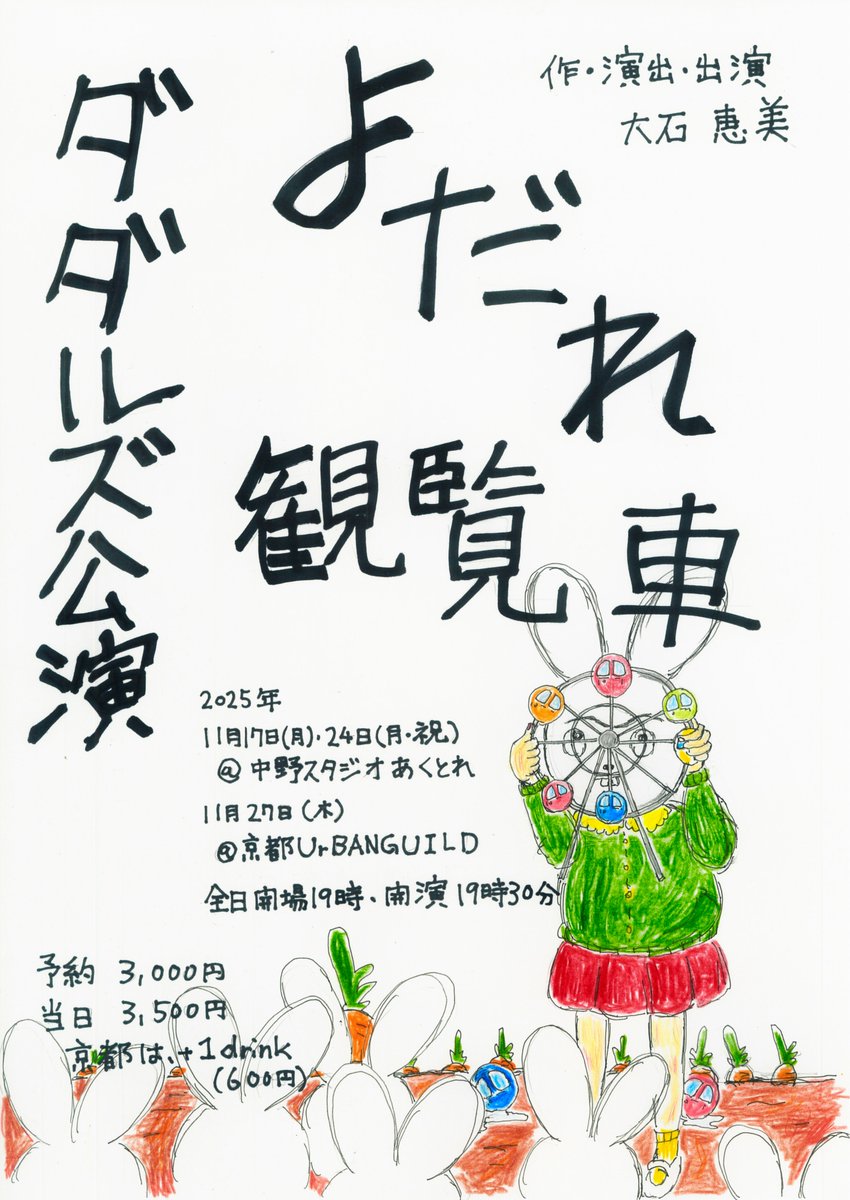 ダダルズ公演
よだれ
観覧車
作・演出・出演
大石 恵美
2025年
11月17日(月)・24日(月・祝)
@中野スタジオあくとれ
11月27日(木)
@京都UrBANGUILD
全日開場19時、開演19時30分
予約 3,000円
当日 3,500円
京都は、+1drink
(600円)